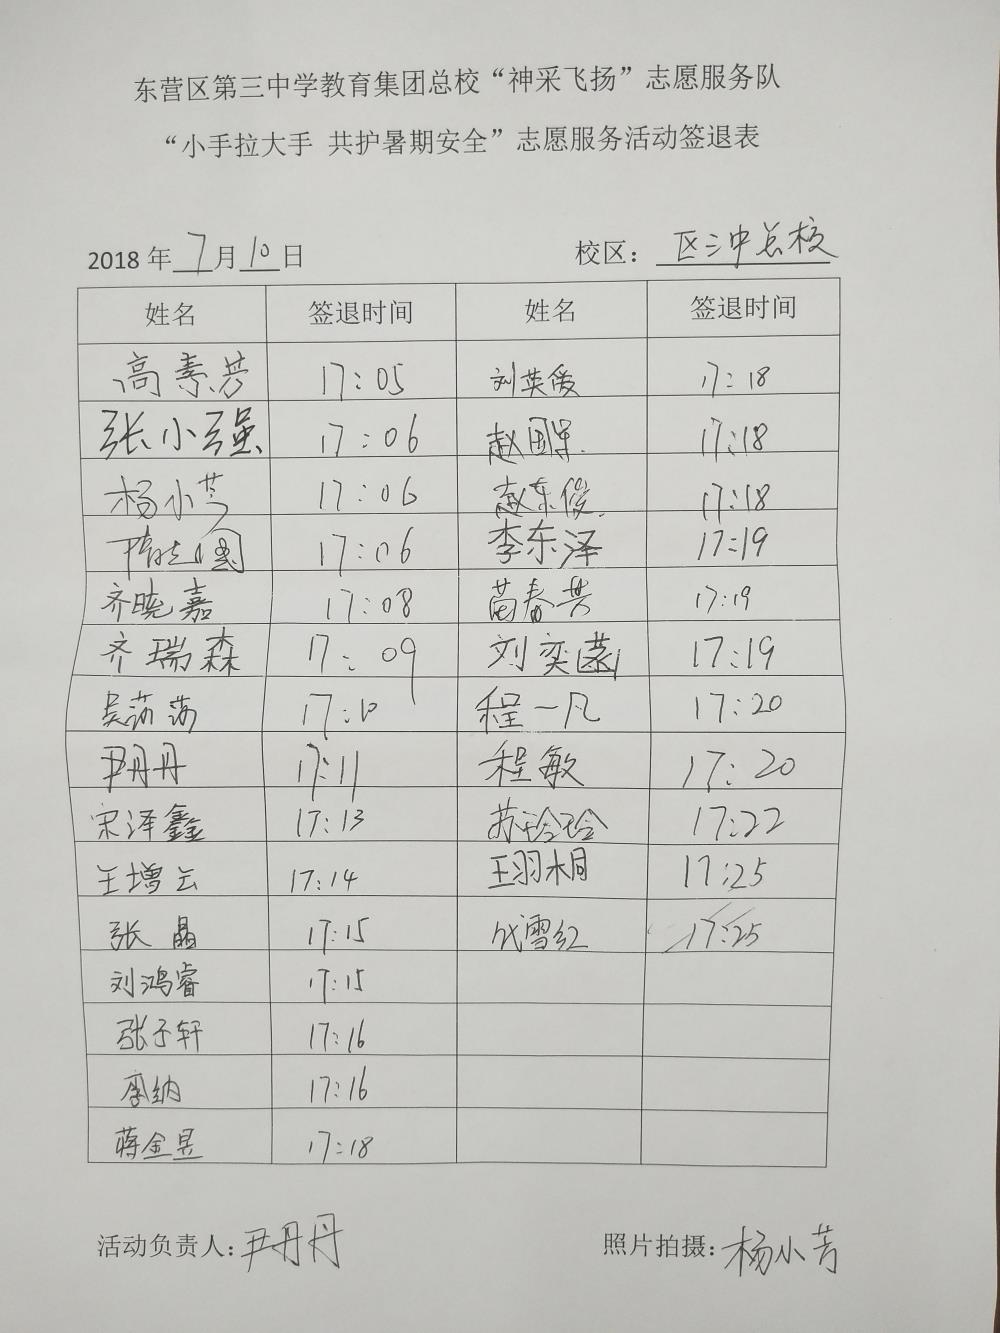 东营区第三中学教育集团总校“神采飞扬”志愿服务队
“小手拉大手 共护暑期安全”志愿服务活动签退表
2018年7月10日 校区：区三中总校
姓名 签退时间 姓名 签退时间
高素芳 17:05 刘英爱 17:18
张小强 17:06 赵国军 17:18
杨小芳 17:06 赵东俊 17:18
17:06 李东泽 17:19
齐晓嘉 17:08 苗春英 17:19
齐瑞森 17:09 刘奕菡 17:19
吴莎莎 17:10 程一凡 17:20
尹丹丹 17:11 程敏 17:20
宋泽鑫 17:13 苏玲玲 17:22
王增云 17:14 王羽桐 17:25
张晶 17:15 代雪红 17:25
刘鸿睿 17:15
张子轩 17:16
李纳 17:16
蒋金昱 17:18
活动负责人：尹丹丹 照片拍摄：杨小芳